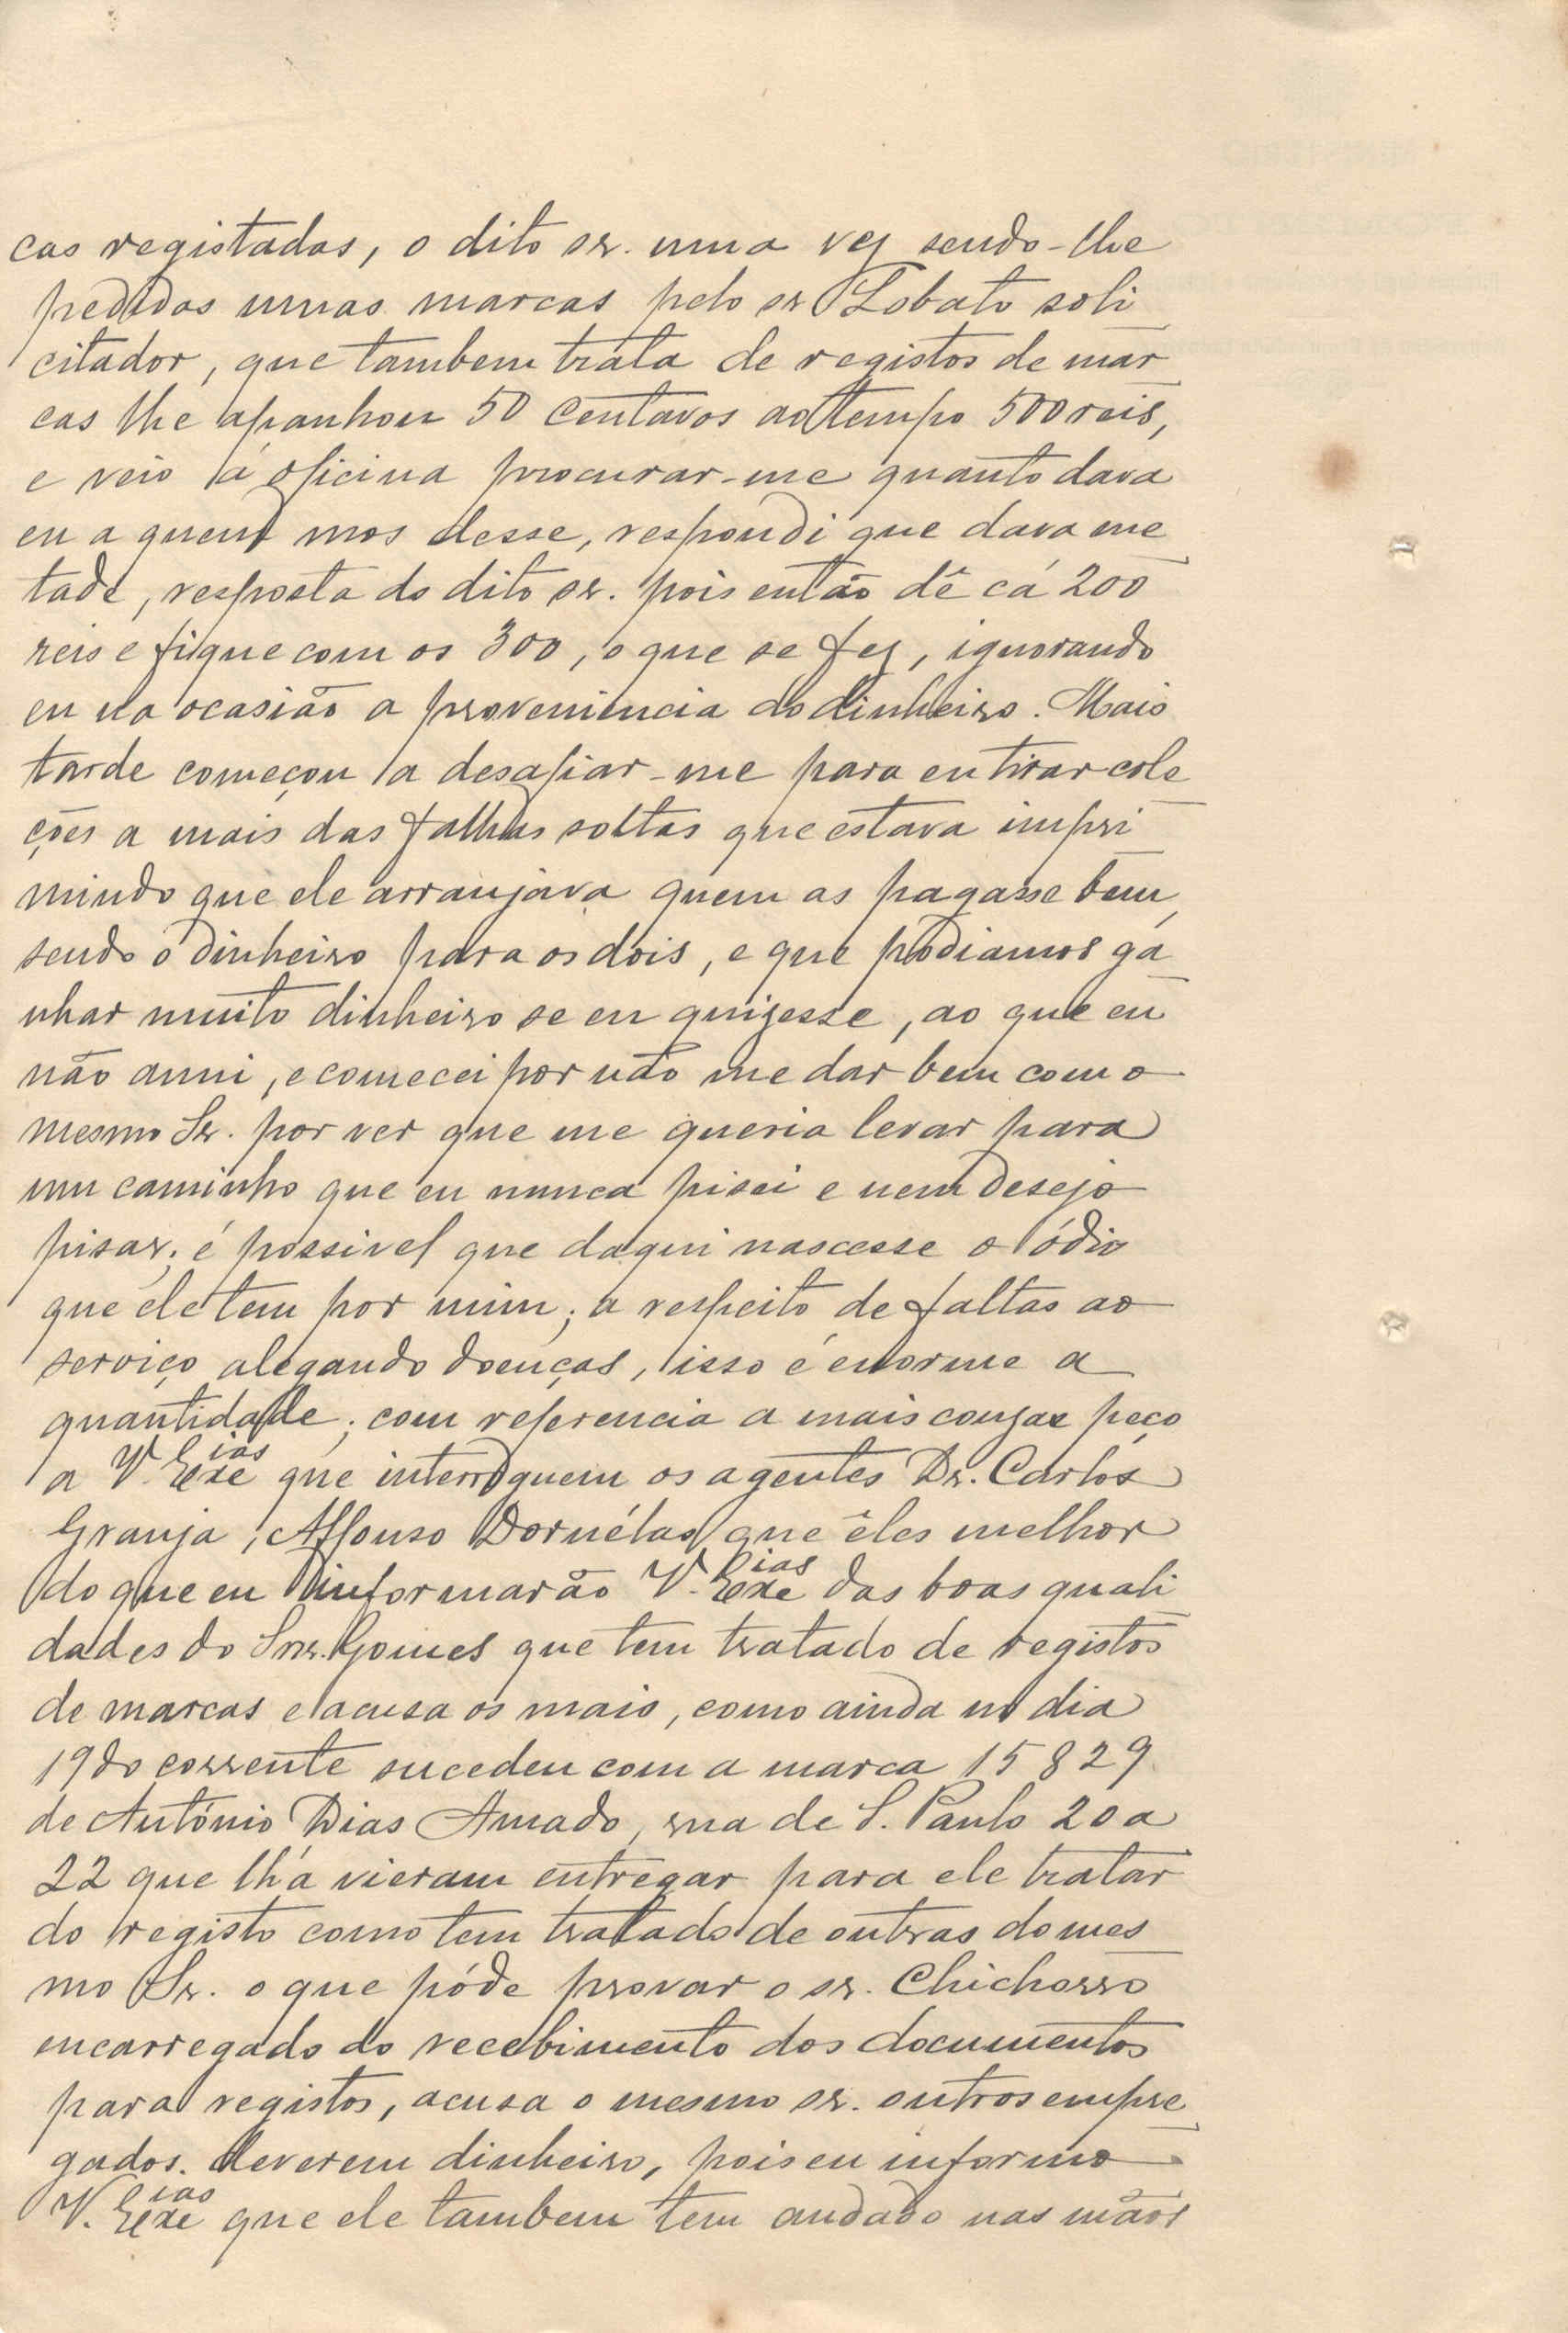 cas registadas, o dito sr. uma vez sendo-lhe
pedidas umas marcas pelo sr Lobato soli
citador, que tambem trata de registos de mar
cas lhe apanhou 50 centavos ao tempo 500 reis,
e veio á oficina procurar-me quanto dava
eu a quem mos desse, respondi que dava me
tade, resposta do dito sr. pois então dê cá 200
reis e fique com os 300, o que se fez, ignorando
eu na ocasião a proveniencia do dinheiro. Mais
tarde começou a desafiar-me para eu tirar cole
ções a mais das folhas soltas que estava impri
mindo que ele arranjava quem as pagasse bem,
sendo o dinheiro para os dois, e que podiamos ga
nhar muito dinheiro se eu quizesse, ao que eu
não anui, e comecei por não me dar bem com o
mesmo Sr. por ver que me queria levar para
um caminho que eu nunca pisei e nem desejo
pisar; é possivel que daqui nascesse o ódio
que ele tem por mim; a respeito de faltas ao
serviço alegando doenças, isso é enorme a
quantidade; com referencia a mais couzas peço
a V. Exc<sup>ias</sup> que interroguem os agentes Dr. Carlos
Granja, Affonso Dornélas que êles melhor
do que eu informarão V. Exc<sup>ias</sup> das boas quali
dades do Snr. Gomes que tem tratado de registos
de marcas e acusa os mais, como ainda no dia
19 do corrente sucedeu com a marca 15829
de António Dias Amado, rua de S. Paulo 20 a
22 que lh'a vieram entregar para ele tratar
do registo como tem tratado de outras do mes
mo Sr. o que póde provar o sr. Chichorro
encarregado do recebimento dos documentos
para registos, acusa o mesmo sr. outros empre
gados. deverem dinheiro, pois eu informo
V. Exc<sup>ias</sup> que ele tambem tem andado nas mãos